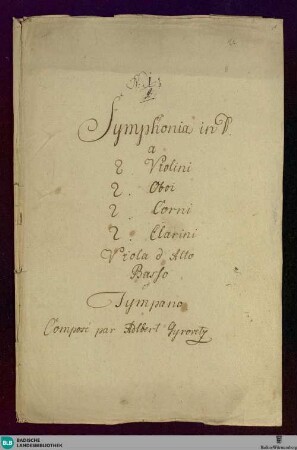 N. 1.
Symphonia in D.
a
2 Violini
2. Oboi
2. Corni
2. Clarini
Viola d'Alto
Basso
e
Tympano
Composé par Adlbert Gyrovetz
BLB BADISCHE
LANDESBIBLIOTHEK
Baden-Württemberg